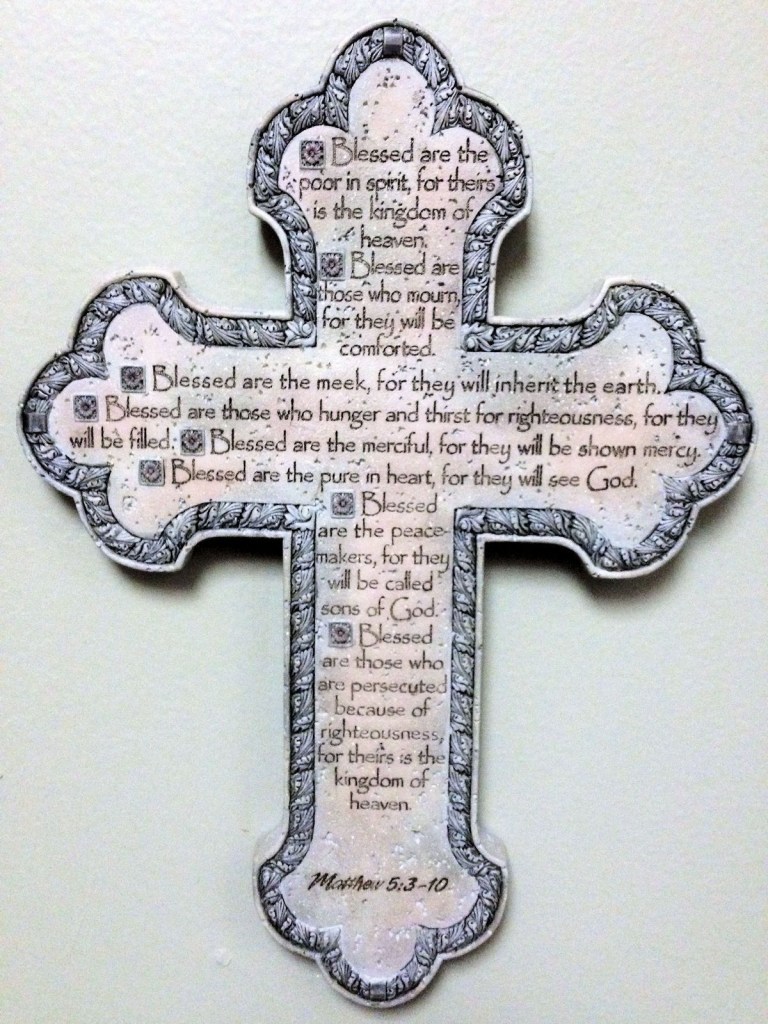 Blessed are the
poor in spirit, for theirs
is the kingdom of
heaven.
Blessed are
those who mourn,
for they will be
comforted.
Blessed are the meek, for they will inherit the earth.
Blessed are those who hunger and thirst for righteousness, for they
will be filled. Blessed are the merciful, for they will be shown mercy.
Blessed are the pure in heart, for they will see God.
Blessed
are the peace-
makers, for they
will be called
sons of God.
Blessed
are those who
are persecuted
because of
righteousness,
for theirs is the
kingdom of
heaven.
Matthew 5:3-10